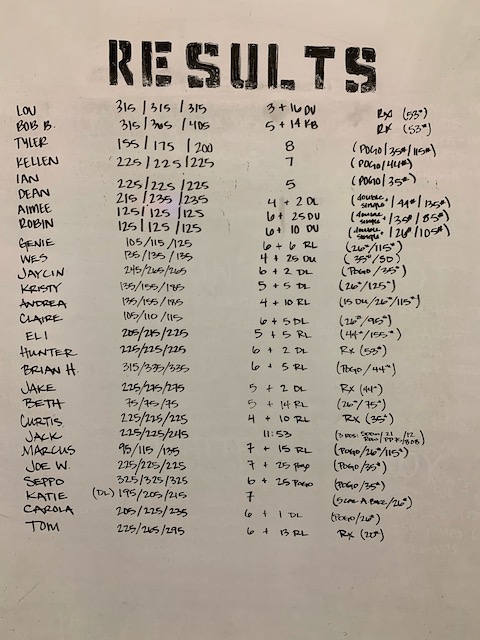 RESULTS
LOU 315/315/315 3 + 16 DU RX (53#)
BOB B. 315/365/405 5 + 14 KB RX (53#)
TYLER 155/175/200 8 (POGO/35#/115#)
KELLEN 225/225/225 7 (POGO/44#)
IAN 225/225/225 5 (POGO/35#)
DEAN 215/235/235 4 + 2 DL (double single/44#/135#)
AIMEE 125/125/125 6 + 25 DU (double single/35#/85#)
ROBIN 125/125/125 6 + 10 DU (double single/26#/105#)
GENIE 105/115/125 6 + 6 RL (26#/115#)
WES 135/135/135 4 + 25 DU (35#/50)
JAYLIN 245/265/265 6 + 2 DL (POGO/35#)
KRISTY 135/155/185 5 + 5 DL (26#/125#)
ANDREA 135/155/185 4 + 10 RL (15 DU/26#/115#)
CLAIRE 105/110/115 6 + 5 DL (26#/95#)
ELI 205/215/225 5 + 5 RL (44#/155#)
HUNTER 225/225/225 6 + 2 DL RX (53#)
BRIAN H. 315/335/335 6 + 5 RL (POGO/44#)
JAKE 225/275/275 5 + 2 DL RX (44#)
BETH 75/75/75 5 + 14 RL (26#/75#)
CURTIS 225/225/225 4 + 10 RL RX (35#)
JACK 225/225/245 11:53
MARCUS 95/115/135 7 + 15 RL (POGO/26#/115#)
JOE W. 225/225/225 7 + 25 POGO (POGO/35#)
SEPPO 325/325/325 6 + 25 POGO (POGO/35#)
KATIE (DL) 195/205/215 7
CAROLA 205/225/235 6 + 1 DL (POGO/26#)
TOM 225/265/295 6 + 13 RL RX (20#)